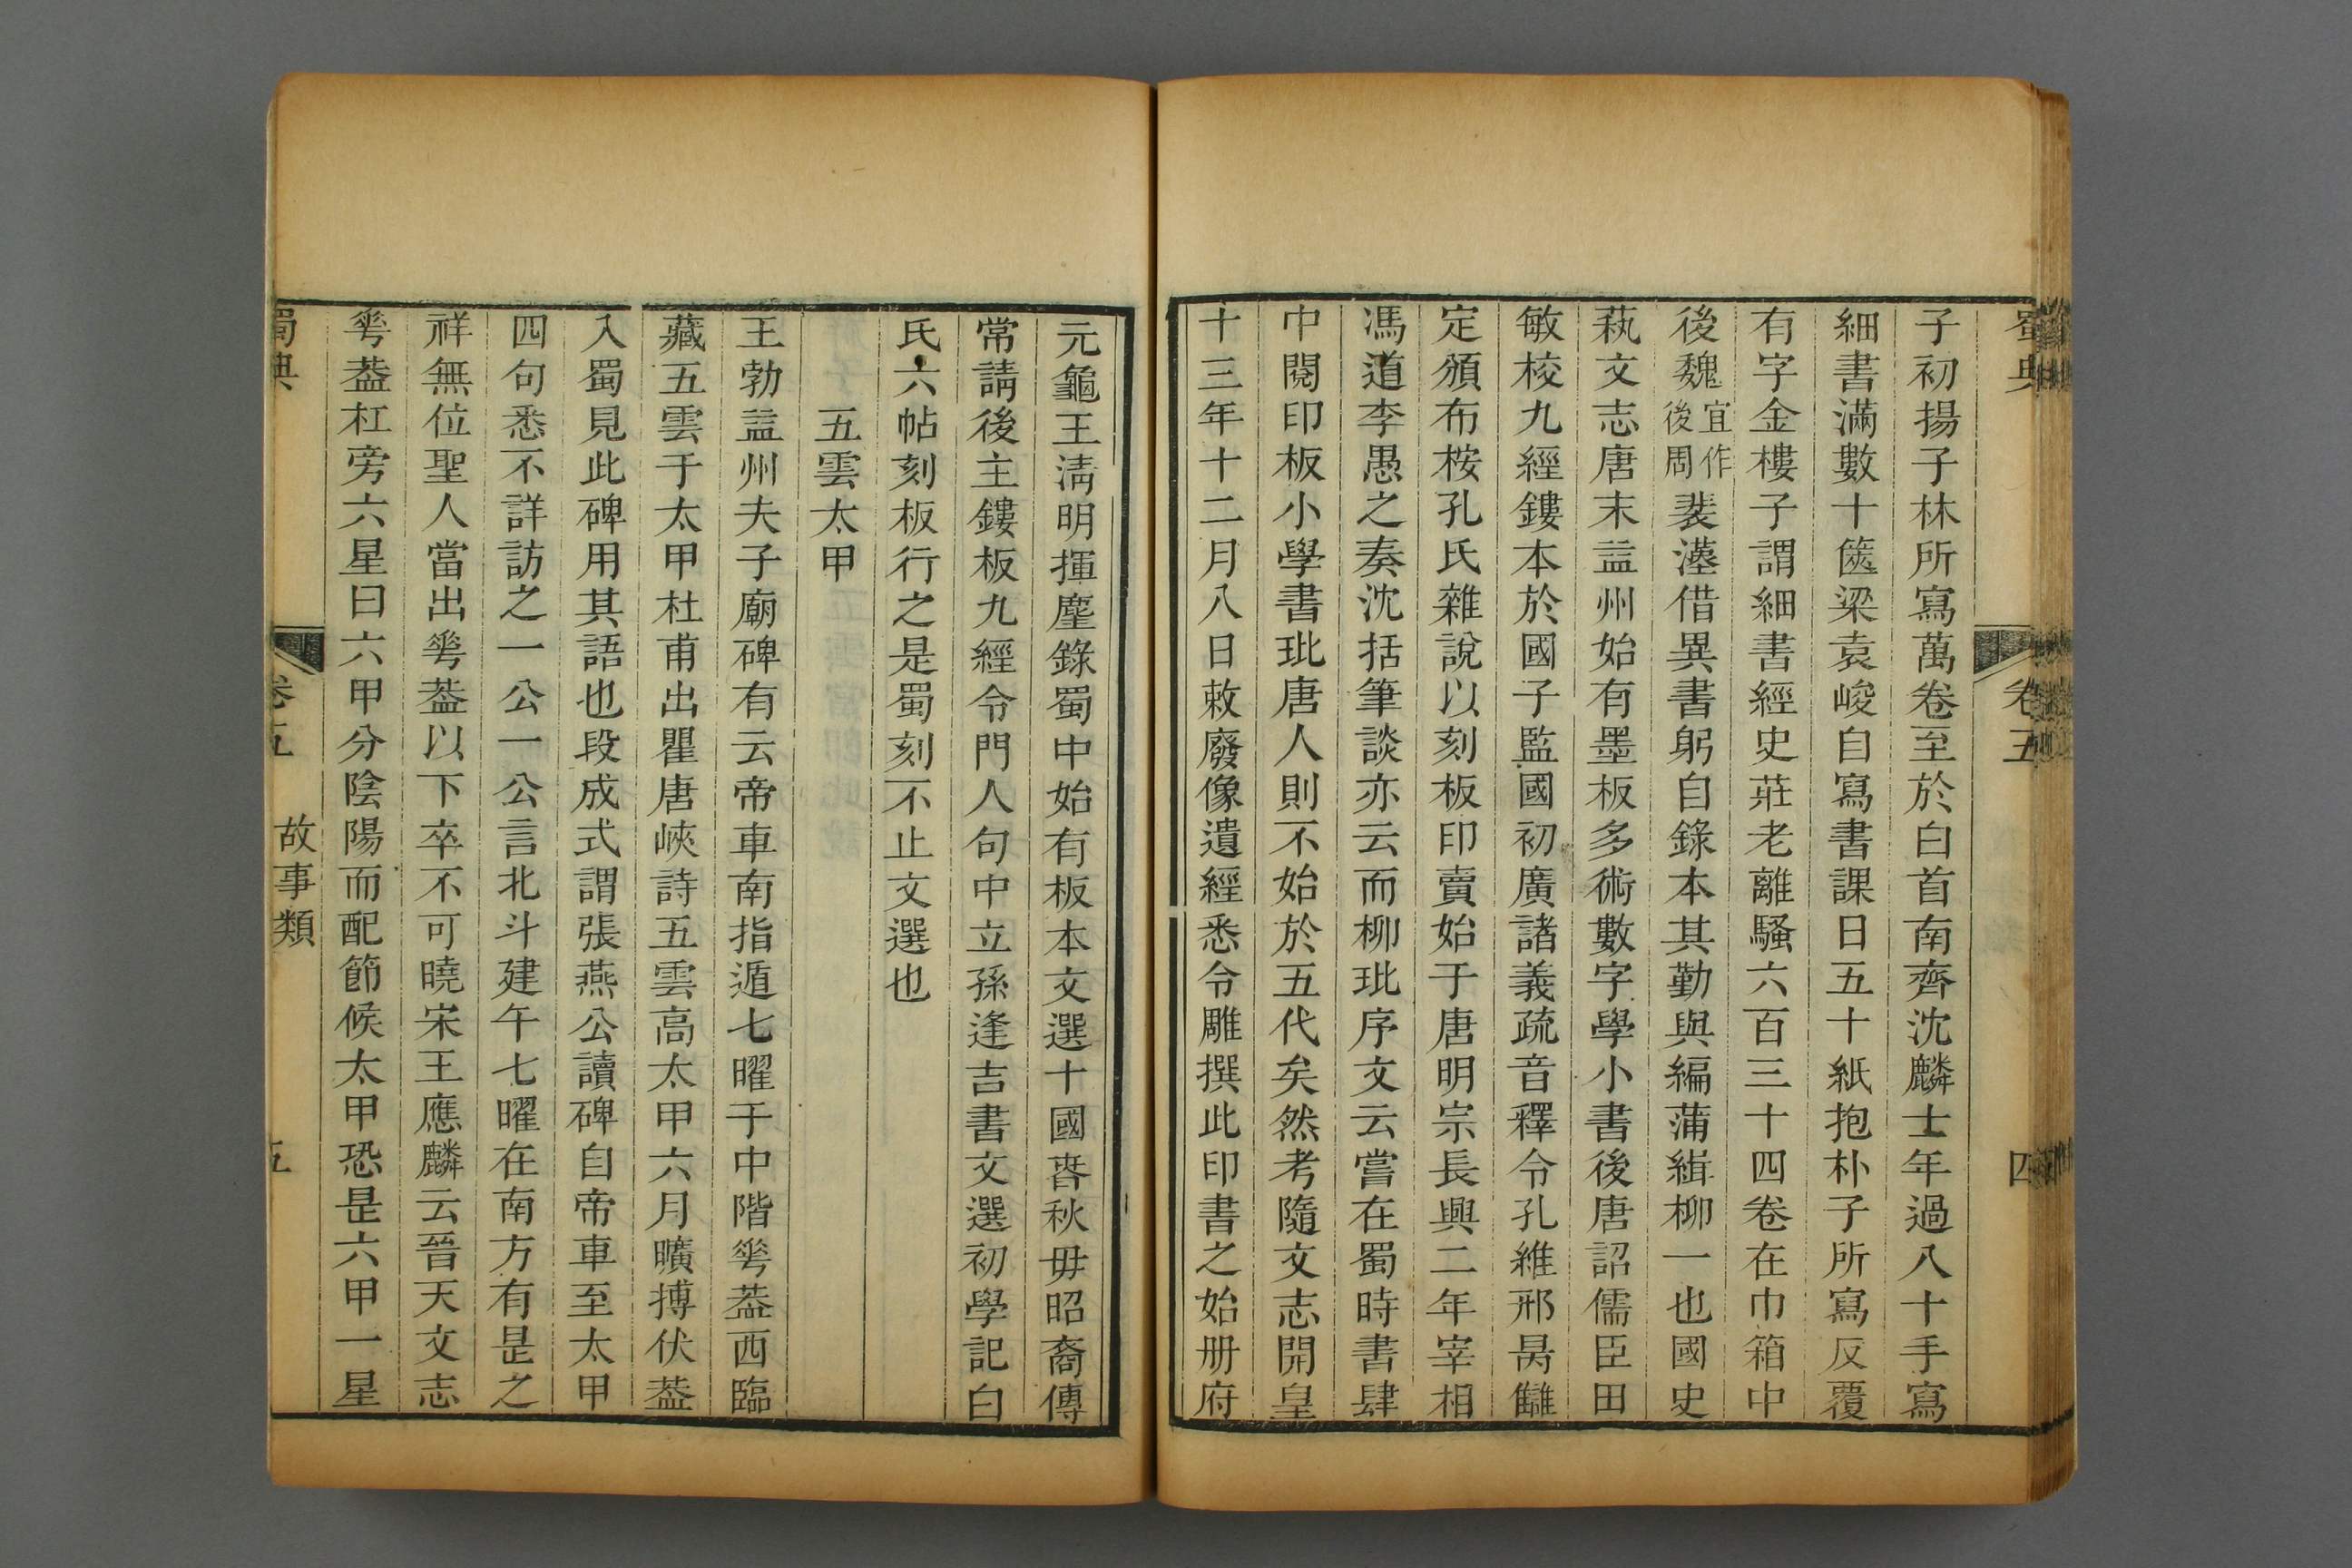 蜀典 卷五 四
子初揚子林所寫萬卷至於白首南齊沈麟士年過八十手寫
細書滿數十篋梁袁峻自寫書課日五十紙抱朴子所寫反覆
有字金樓子謂細書經史莊老離騷六百三十四卷在巾箱中
後魏宜作後周裴漢借異書躬自錄本其勤與編蒲緝柳一也國史
蓺文志唐末益州始有墨板多術數字學小書後唐詔儒臣田
敏校九經鏤本於國子監國初廣諸義疏音釋令孔維邢昺讎
定頒布桉孔氏雜說以刻板印賣始于唐明宗長興二年宰相
馮道李愚之奏沈括筆談亦云而柳玭序文云嘗在蜀時書肆
中閱印板小學書玭唐人則不始於五代矣然考隨文志開皇
十三年十二月八日敕廢像遺經悉令雕撰此印書之始册府
元龜王淸明揮麈錄蜀中始有板本文選十國春秋毋昭裔傳
常請後主鏤板九經令門人句中立孫逢吉書文選初學記白
氏六帖刻板行之是蜀刻不止文選也
五雲太甲
王勃益州夫子廟碑有云帝車南指遁七曜于中階華葢西臨
藏五雲于太甲杜甫出瞿唐峽詩五雲高太甲六月曠搏伏葢
入蜀見此碑用其語也段成式謂張燕公讀碑自帝車至太甲
四句悉不詳訪之一公一公言北斗建午七曜在南方有是之
祥無位聖人當出華葢以下卒不可曉宋王應麟云晉天文志
華葢杠旁六星曰六甲分陰陽而配節候太甲恐是六甲一星
蜀典 卷五 故事類 五